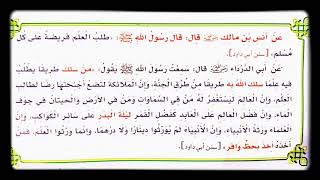 عَنْ أَنَسِ بْنِ مَالِكٍ ﷺ قَالَ: قَالَ رَسُولُ اللهِ ﷺ: «طَلَبُ الْعِلْمِ فَرِيضَةٌ عَلَى كُلِّ
مُسْلِمٍ» [سنن أبي داود].
عَنْ أَبِي الدَّرْدَاءِ قَالَ: سَمِعْتُ رَسُولَ اللهِ ﷺ يَقُولُ: «مَنْ سَلَكَ طَرِيقًا يَطْلُبُ
فِيهِ عِلْمًا سَلَكَ اللهُ بِهِ طَرِيقًا مِنْ طُرُقِ الْجَنَّةِ، وَإِنَّ الْمَلَائِكَةَ لَتَضَعُ أَجْنِحَتَهَا رِضًا لِطَالِبِ
الْعِلْمِ، وَإِنَّ الْعَالِمَ لَيَسْتَغْفِرُ لَهُ مَنْ فِي السَّمَاوَاتِ وَمَنْ فِي الْأَرْضِ وَالْحِيتَانُ فِي جَوْفِ
الْمَاءِ، وَإِنَّ فَضْلَ الْعَالِمِ عَلَى الْعَابِدِ كَفَضْلِ الْقَمَرِ لَيْلَةَ الْبَدْرِ عَلَى سَائِرِ الْكَوَاكِبِ، وَإِنَّ
الْعُلَمَاءَ وَرَثَةُ الْأَنْبِيَاءِ، وَإِنَّ الْأَنْبِيَاءَ لَمْ يُوَرِّثُوا دِينَارًا وَلَا دِرْهَمًا، وَإِنَّمَا وَرَّثُوا الْعِلْمَ، فَمَنْ
أَخَذَهُ أَخَذَ بِحَظٍّ وَافِرٍ» [سنن أبي داود].